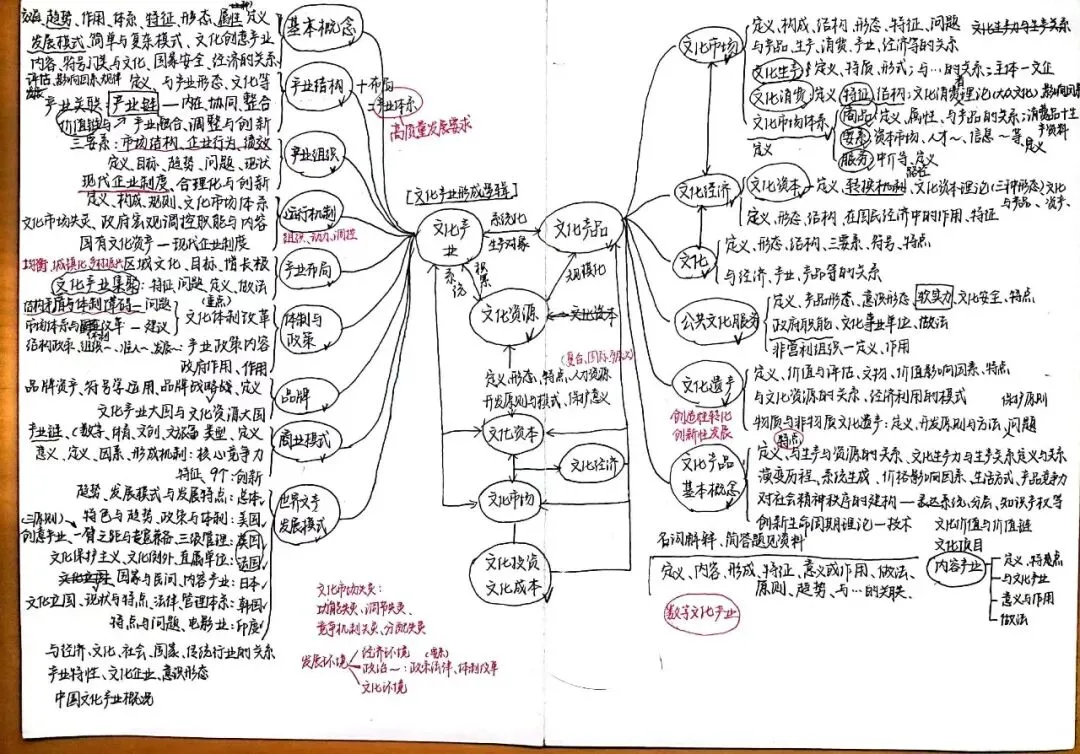 交点、趋势、作用、体系、特征、形态、属性、定义
发展模式、简单与复杂模式、文化创意产业
内容、符号 与文化、国家安全、经济的关系
基本概念
评估、影响因素、规律 定义、与产业形态、文化等
产业关联：产业链—内在、协同、整合
价值链 产业融合、调整与创新
产业结构
十布局
产业体系
高质量发展要求
三要素：市场结构、企业行为、绩效
定义、目标、趋势、问题、现状
现代企业制度、合理化与创新
产业组织
定义、构成、规则、文化市场体系
文化市场失灵、政府宏观调控职能与内容
国有文化资产—现代企业制度
运行机制
组织、动力、调控
均衡、城镇化、乡村振兴 区域文化、目标、增长极
文化产业集聚：特征、问题、定义、做法
产业布局
结构矛盾与体制障碍—问题
市场体系与 改革—建议
（重点）
文化体制改革
结构政策、组织~、准入~、发展~：产业政策内容
政府作用、作用
体制与
政策
品牌资产、符号学运用、品牌战略、定义
文化产业大国与文化资源大国
品牌
产业链、（数字、体育、文创、文旅）类型、定义
意义、定义、因素、形成机制：核心竞争力
特征、9个创新
商业模式
趋势、发展模式与发展特点：总体
特色与趋势、政策与体制：美国
（三原则）
创意产业、一臂之距 三级管理：英国
文化保护主义、文化例外、直属单位：法国
国家与民间、内容产业：日本
文化立国、现状与特点、法律、管理体系：韩国
特点与问题、电影业：印度
世界文产
发展模式
与经济、文化、社会、国家、传统行业的关系
产业特性、文化企业、意识形态
中国文化产业概况
[文化产业形成逻辑]
文化产业
系统化
生产对象
文化产品
系统
积累
规模化
文化资源
文化资本
定义、形态、特点、人才资源
开发原则与模式、保护意义
文化资本
文化经济
文化市场
文化投资
文化成本
文化市场失灵：
功能失灵、调节失灵、
竞争机制失灵、分配失灵
发展环境
经济环境
政治~：政策法律、体制改革
文化环境
文化市场
定义、构成、结构、形态、特征、问题
文化生产力与生产关系
与产品、生产、消费、产业、经济等的关系
文化生产：定义、特质、形式；与…的关系；主体—文企
文化消费：定义、特征、结构；文化消费理论（大众文化）、影响因素
文化市场体系
定义
商品：定义、属性、与产品的关系；消费品十生产资料
要素：资本市场、人才~、信息~等、定义
服务：中介等、定义
文化经济
文化资本—定义、转换机制、文化资本理论（三种形态）文化
与产品、资产、
定义、形态、结构、在国民经济中的作用、特征
文化
定义、形态、结构、三要素、符号、特点
与经济、产业、产品等的关系
公共文化服务
定义、产品形态、意识形态、软实力、文化安全、特点
政府职能、文化事业单位、做法
非营利组织—定义、作用
文化遗产
创造性转化
创新性发展
定义、价值与评估、文物、价值影响因素、特点
与文化资源的关系、经济利用的模式 保护原则
物质与非物质文化遗产：定义、开发原则与方法、问题
文化产品
基本概念
特点
定义、与生产与资源的关系、文化生产力与生产关系定义与关系
演变历程、系统生成、价格影响因素、生活方式、产品竞争力
对社会精神秩序的建构—表达系统、分层、知识产权等
创新生命周期理论—技术 文化价值与价值链
名词解释、简答题见资料
定义、内容、形成、特征、意义或作用、做法、
原则、趋势、与…的关联、
数字文化产业
文化项目
内容产业
定义、特点
与文化产业
意义与作用
做法